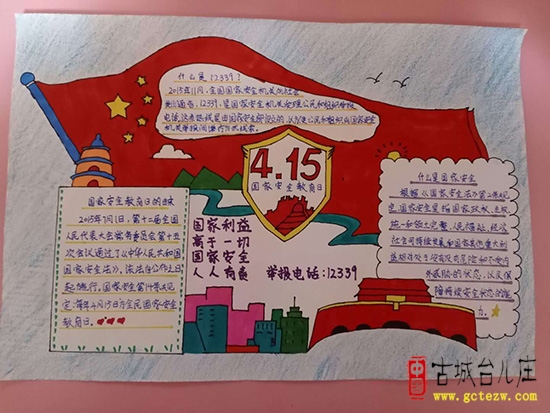 什么是12339?
2015年11月,全国国家安全机关向社会
发出通告,12339,是国家安全机关受理公民和组织举报
电话,这条热线是由国家安全部设立的,以方便公民和组织向国家安全
机关举报间谍行为或线索。
4.15
国家安全教育日
国家安全教育日的由来
2015年7月1日,第十二届全国
人民代表大会常务委员会第十五
次会议通过了《中华人民共和国
国家安全法》,该法自公布之日
起施行,国家安全第14条规
定:每年4月15日为全民国家安全
教育日。
国家利益
高于一切
国家安全
人人有责
举报电话:12339
什么是国家安全
根据《国家安全法》第二条规
定,国家安全是指国家政权、主权、
统一和领土完整、人民福祉、经济
社会可持续发展和国家其他重大利
益相对处于没有危险和不受内
外威胁的状态,以及保
障持续安全状态的能
力。
中国
古城台儿庄
www.gctezw.com